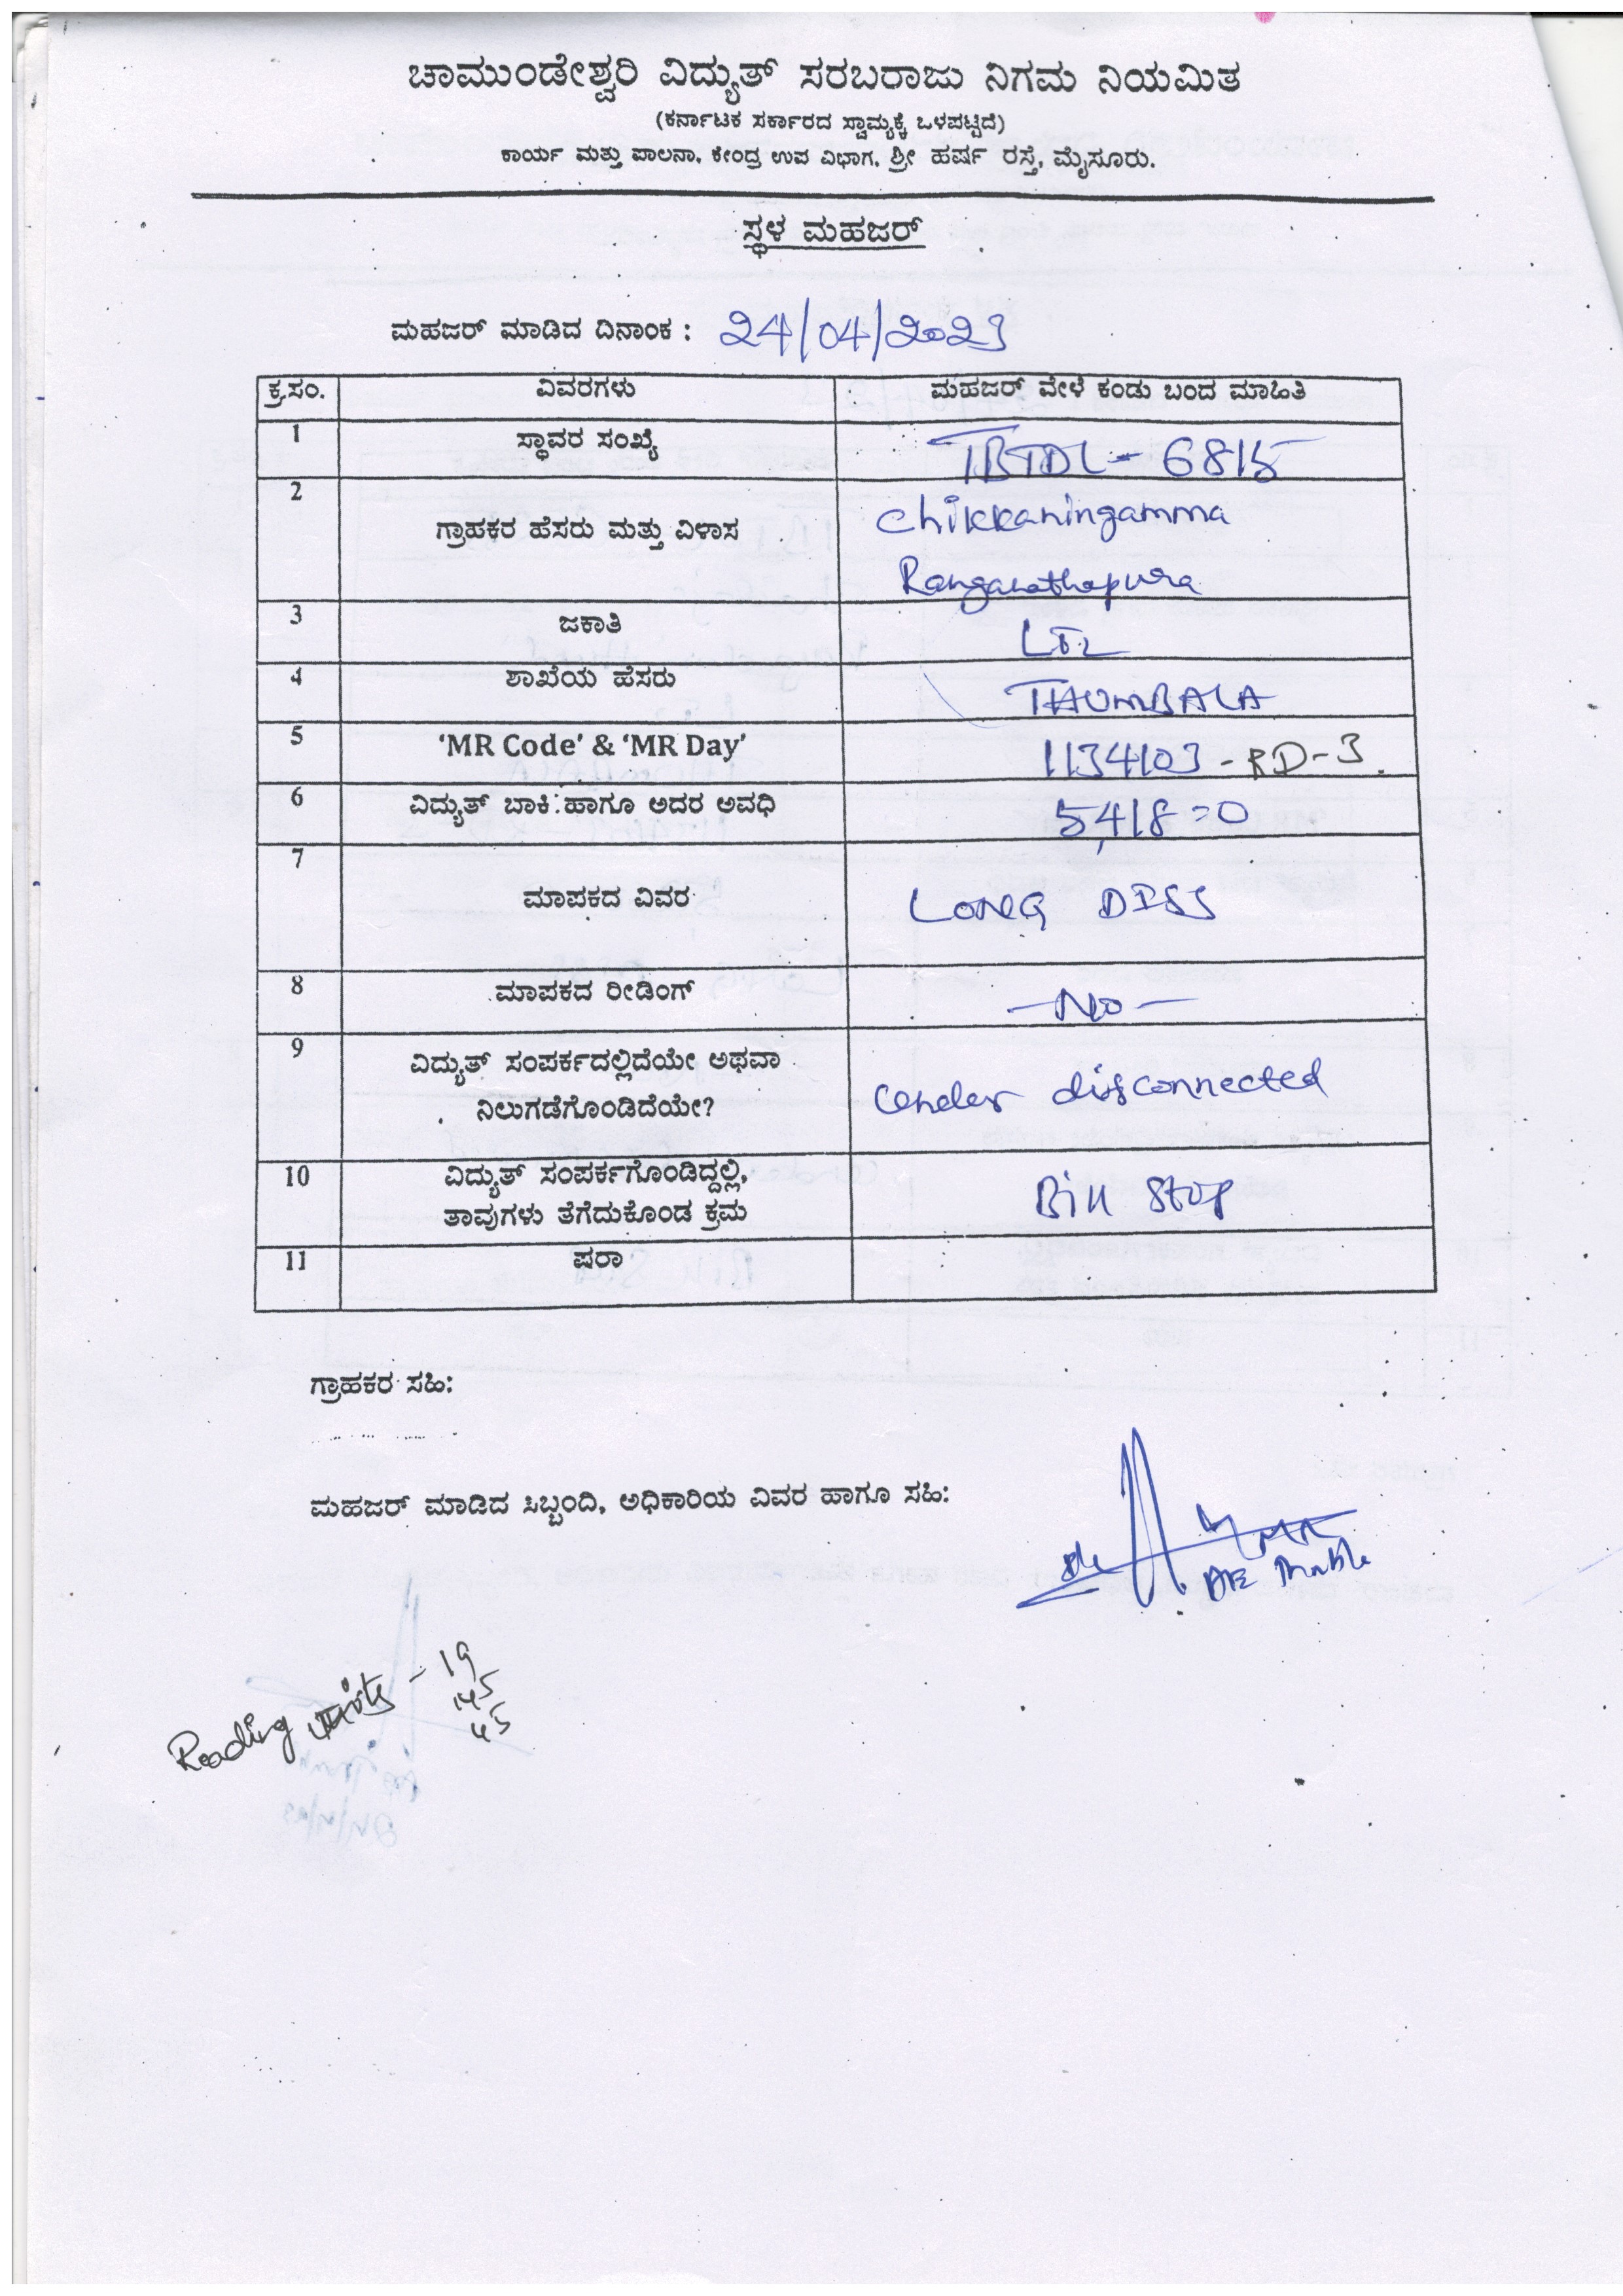 ಚಾಮುಂಡೇಶ್ವರಿ ವಿದ್ಯುತ್ ಸರಬರಾಜು ನಿಗಮ ನಿಯಮಿತ
(ಕರ್ನಾಟಕ ಸರ್ಕಾರದ ಸ್ವಾಮ್ಯಕ್ಕೆ ಒಳಪಟ್ಟಿದೆ)
ಕಾರ್ಯ ಮತ್ತು ಪಾಲನಾ, ಕೇಂದ್ರ ಉಪ ವಿಭಾಗ, ಶ್ರೀ ಹರ್ಷ ರಸ್ತೆ, ಮೈಸೂರು.
ಸ್ಥಳ ಮಹಜರ್
ಮಹಜರ್ ಮಾಡಿದ ದಿನಾಂಕ : 24/04/2023
ಕ್ರ.ಸಂ. ವಿವರಗಳು ಮಹಜರ್ ವೇಳೆ ಕಂಡು ಬಂದ ಮಾಹಿತಿ
1 ಸ್ಥಾವರ ಸಂಖ್ಯೆ TBTDL - 6815
2 ಗ್ರಾಹಕರ ಹೆಸರು ಮತ್ತು ವಿಳಾಸ Chikkaningamma
Ranganathapura
3 ಜಕಾತಿ
4 ಶಾಖೆಯ ಹೆಸರು THUMBALA
5 'MR Code' & 'MR Day' 1134103 - RD-3.
6 ವಿದ್ಯುತ್ ಬಾಕಿ ಹಾಗೂ ಅದರ ಅವಧಿ 5,418=0
7 ಮಾಪಕದ ವಿವರ LONG DISS
8 ಮಾಪಕದ ರೀಡಿಂಗ್ -No-
9 ವಿದ್ಯುತ್ ಸಂಪರ್ಕದಲ್ಲಿದೆಯೇ ಅಥವಾ
ನಿಲುಗಡೆಗೊಂಡಿದೆಯೇ? Under disconnected
10 ವಿದ್ಯುತ್ ಸಂಪರ್ಕಗೊಂಡಿದ್ದಲ್ಲಿ,
ತಾವುಗಳು ತೆಗೆದುಕೊಂಡ ಕ್ರಮ Bill Stop
11 ಷರಾ
ಗ್ರಾಹಕರ ಸಹಿ:
ಮಹಜರ್ ಮಾಡಿದ ಸಿಬ್ಬಂದಿ, ಅಧಿಕಾರಿಯ ವಿವರ ಹಾಗೂ ಸಹಿ:
Reading - 19
45
45